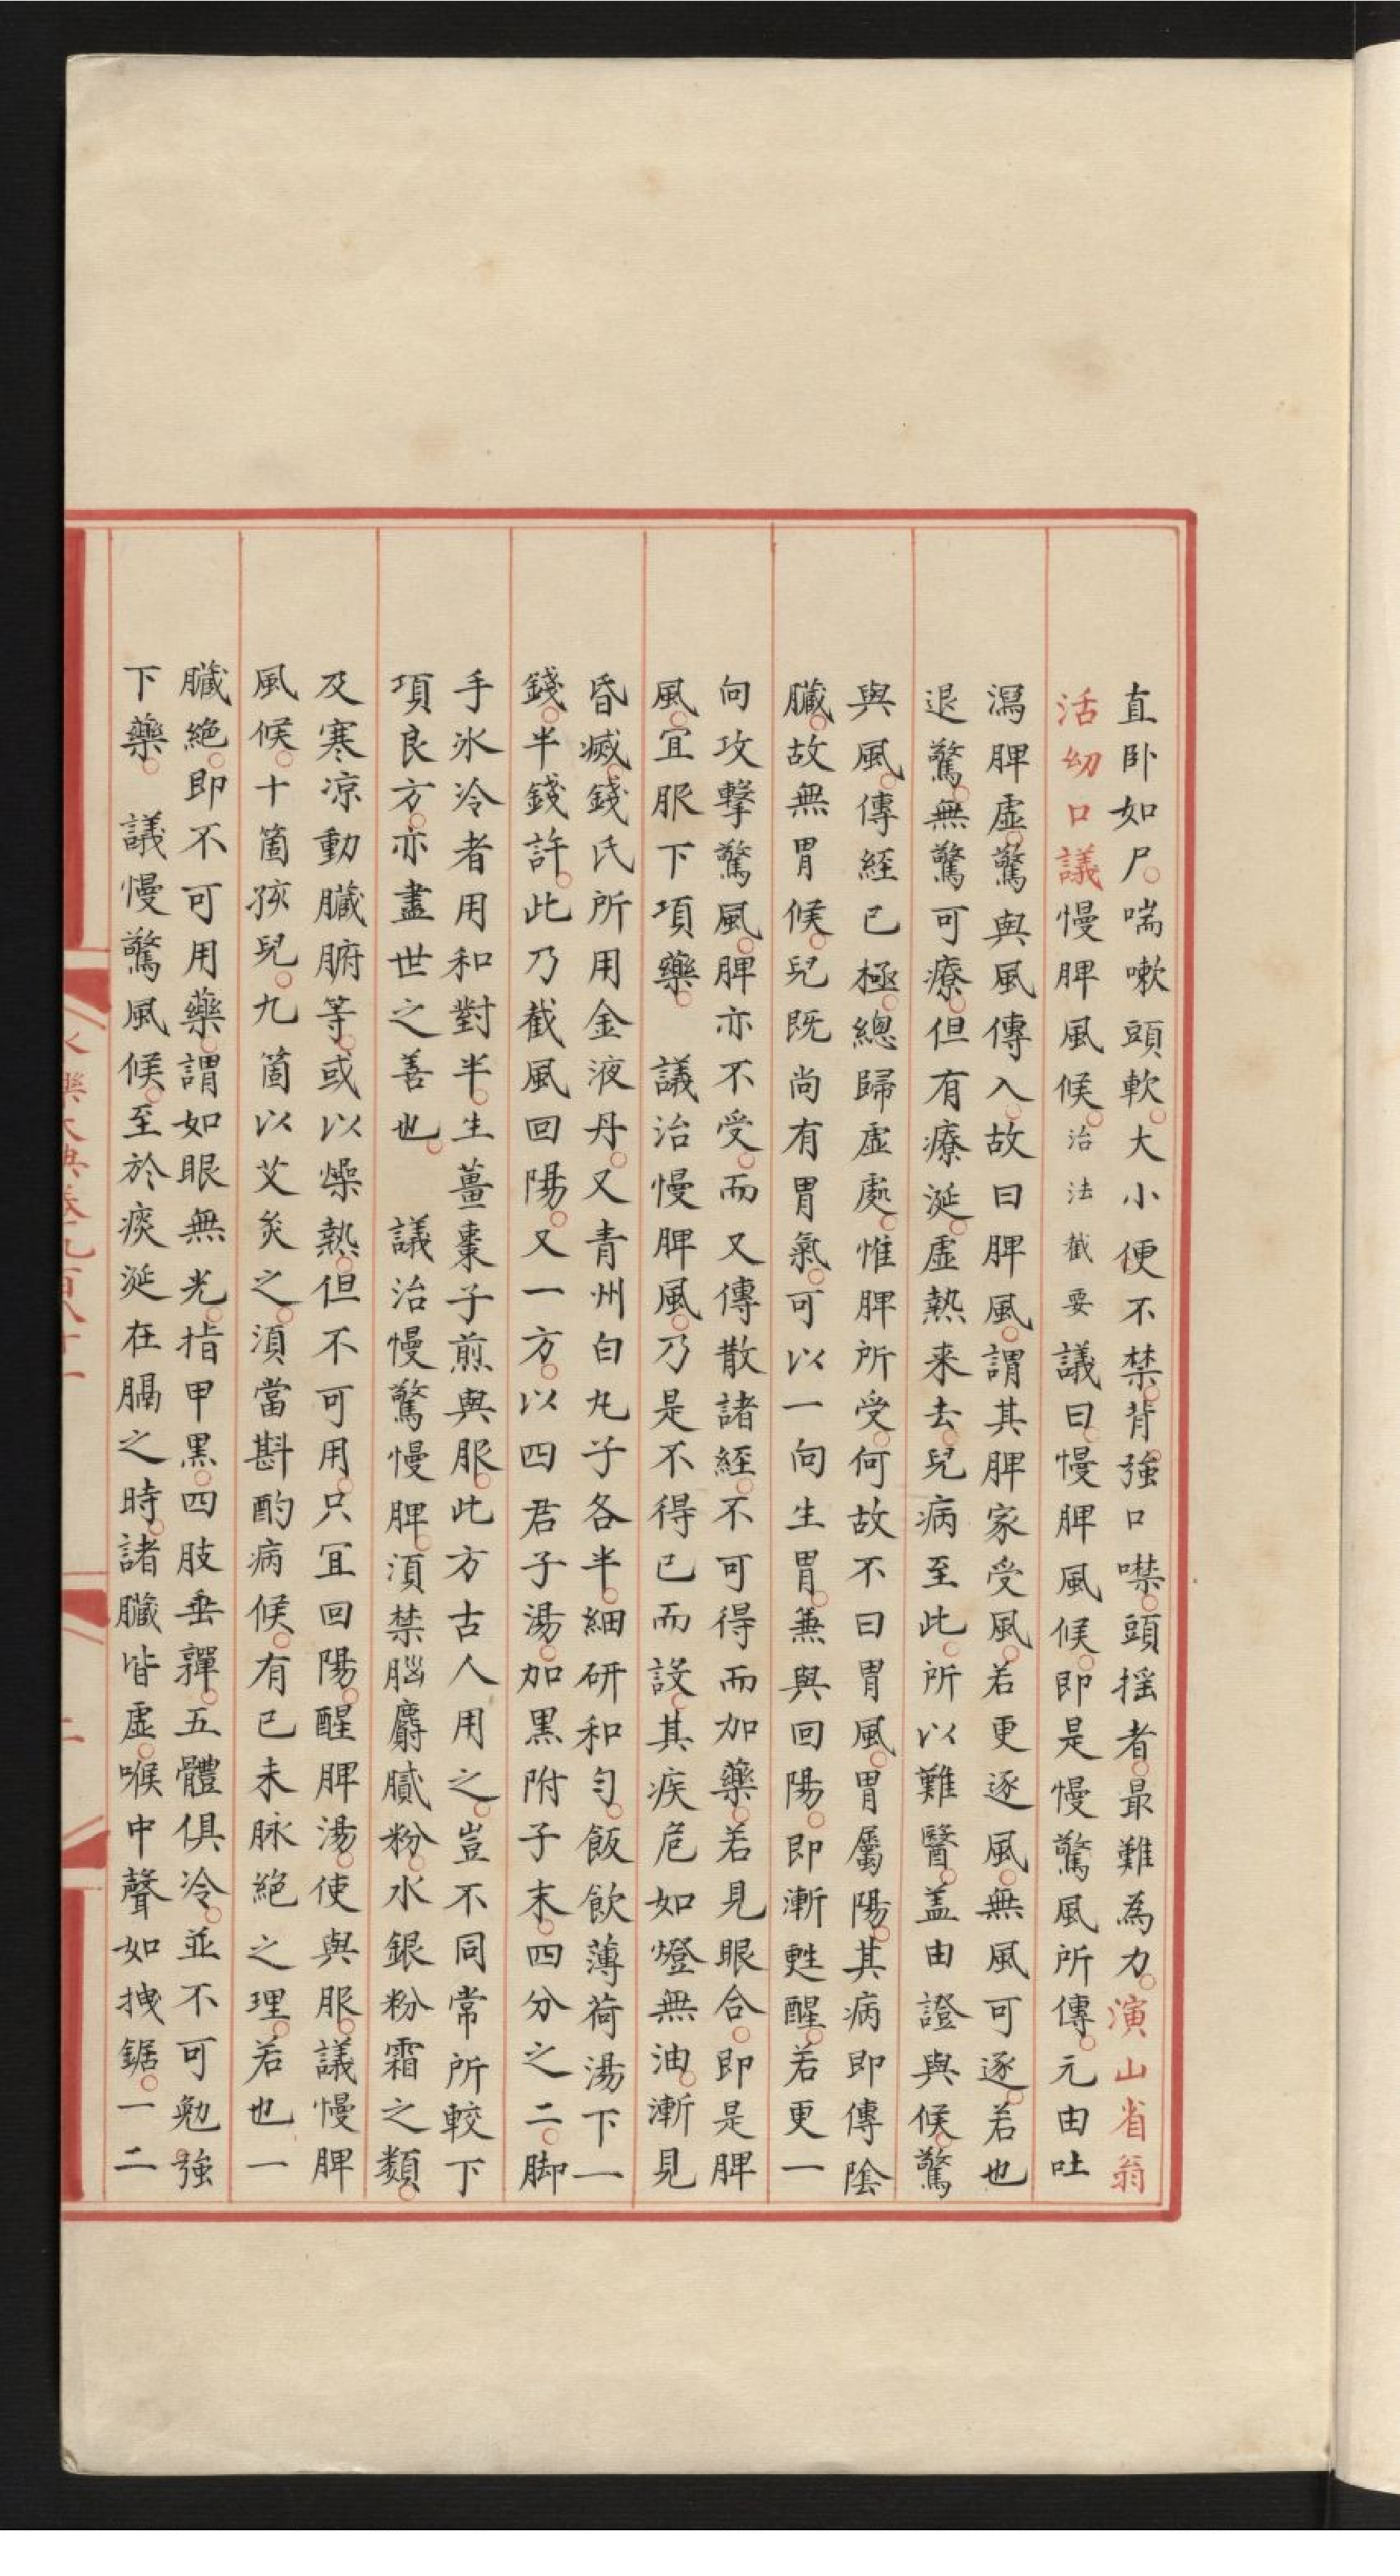 直卧如尸。喘嗽頭軟。大小便不禁。背強口噤。頭揺者。最難為力。演山省翁
活幼口議慢脾風候。治法截要議曰。慢脾風候。即是慢驚風所傳。元由吐
瀉脾虛。驚與風傳入。故曰脾風。謂其脾家受風。若更逐風。無風可逐。若也
退驚。無驚可療。但有療涎。虛熱来去。兒病至此。所以難醫。盖由證與候。驚
與風。傳経已極。總歸虛處。惟脾所受。何故不曰胃風。胃屬陽。其病即傳隂
臟。故無胃候。兒既尚有胃氣。可以一向生胃。兼與回陽。即漸甦醒。若更一
向攻擊驚風。脾亦不受。而又傳散諸經。不可得而加藥。若見眼合。即是脾
風。冝服下項藥。　議治慢脾風。乃是不得已而設。其疾危如燈無油。漸見
昏㓕。錢氏所用金液丹。又青州白丸子各半。細研和勻。飯飲薄荷湯下一
錢。半錢許。此乃截風回陽。又一方。以四君子湯。加黒附子末。四分之二。脚
手氷冷者用和對半。生薑棗子煎與服。此方古人用之。豈不同常所較下
項良方。亦盡世之善也。　議治慢驚慢脾。湏禁腦麝膩粉。水銀粉霜之類。
及寒凉動臟腑等。或以燥熱。但不可用。只冝回陽。醒脾湯。使與服。議慢脾
風候。十箇孩兒。九箇以艾炙之。湏當斟酌病候。有已未脉絕之理。若也一
臟絕。即不可用藥。謂如眼無光。指甲黒。四肢垂嚲。五體俱冷。並不可勉強
下藥。　議慢驚風候。至於痰涎在膈之時。諸臟皆虛。喉中聲如拽鋸。一二